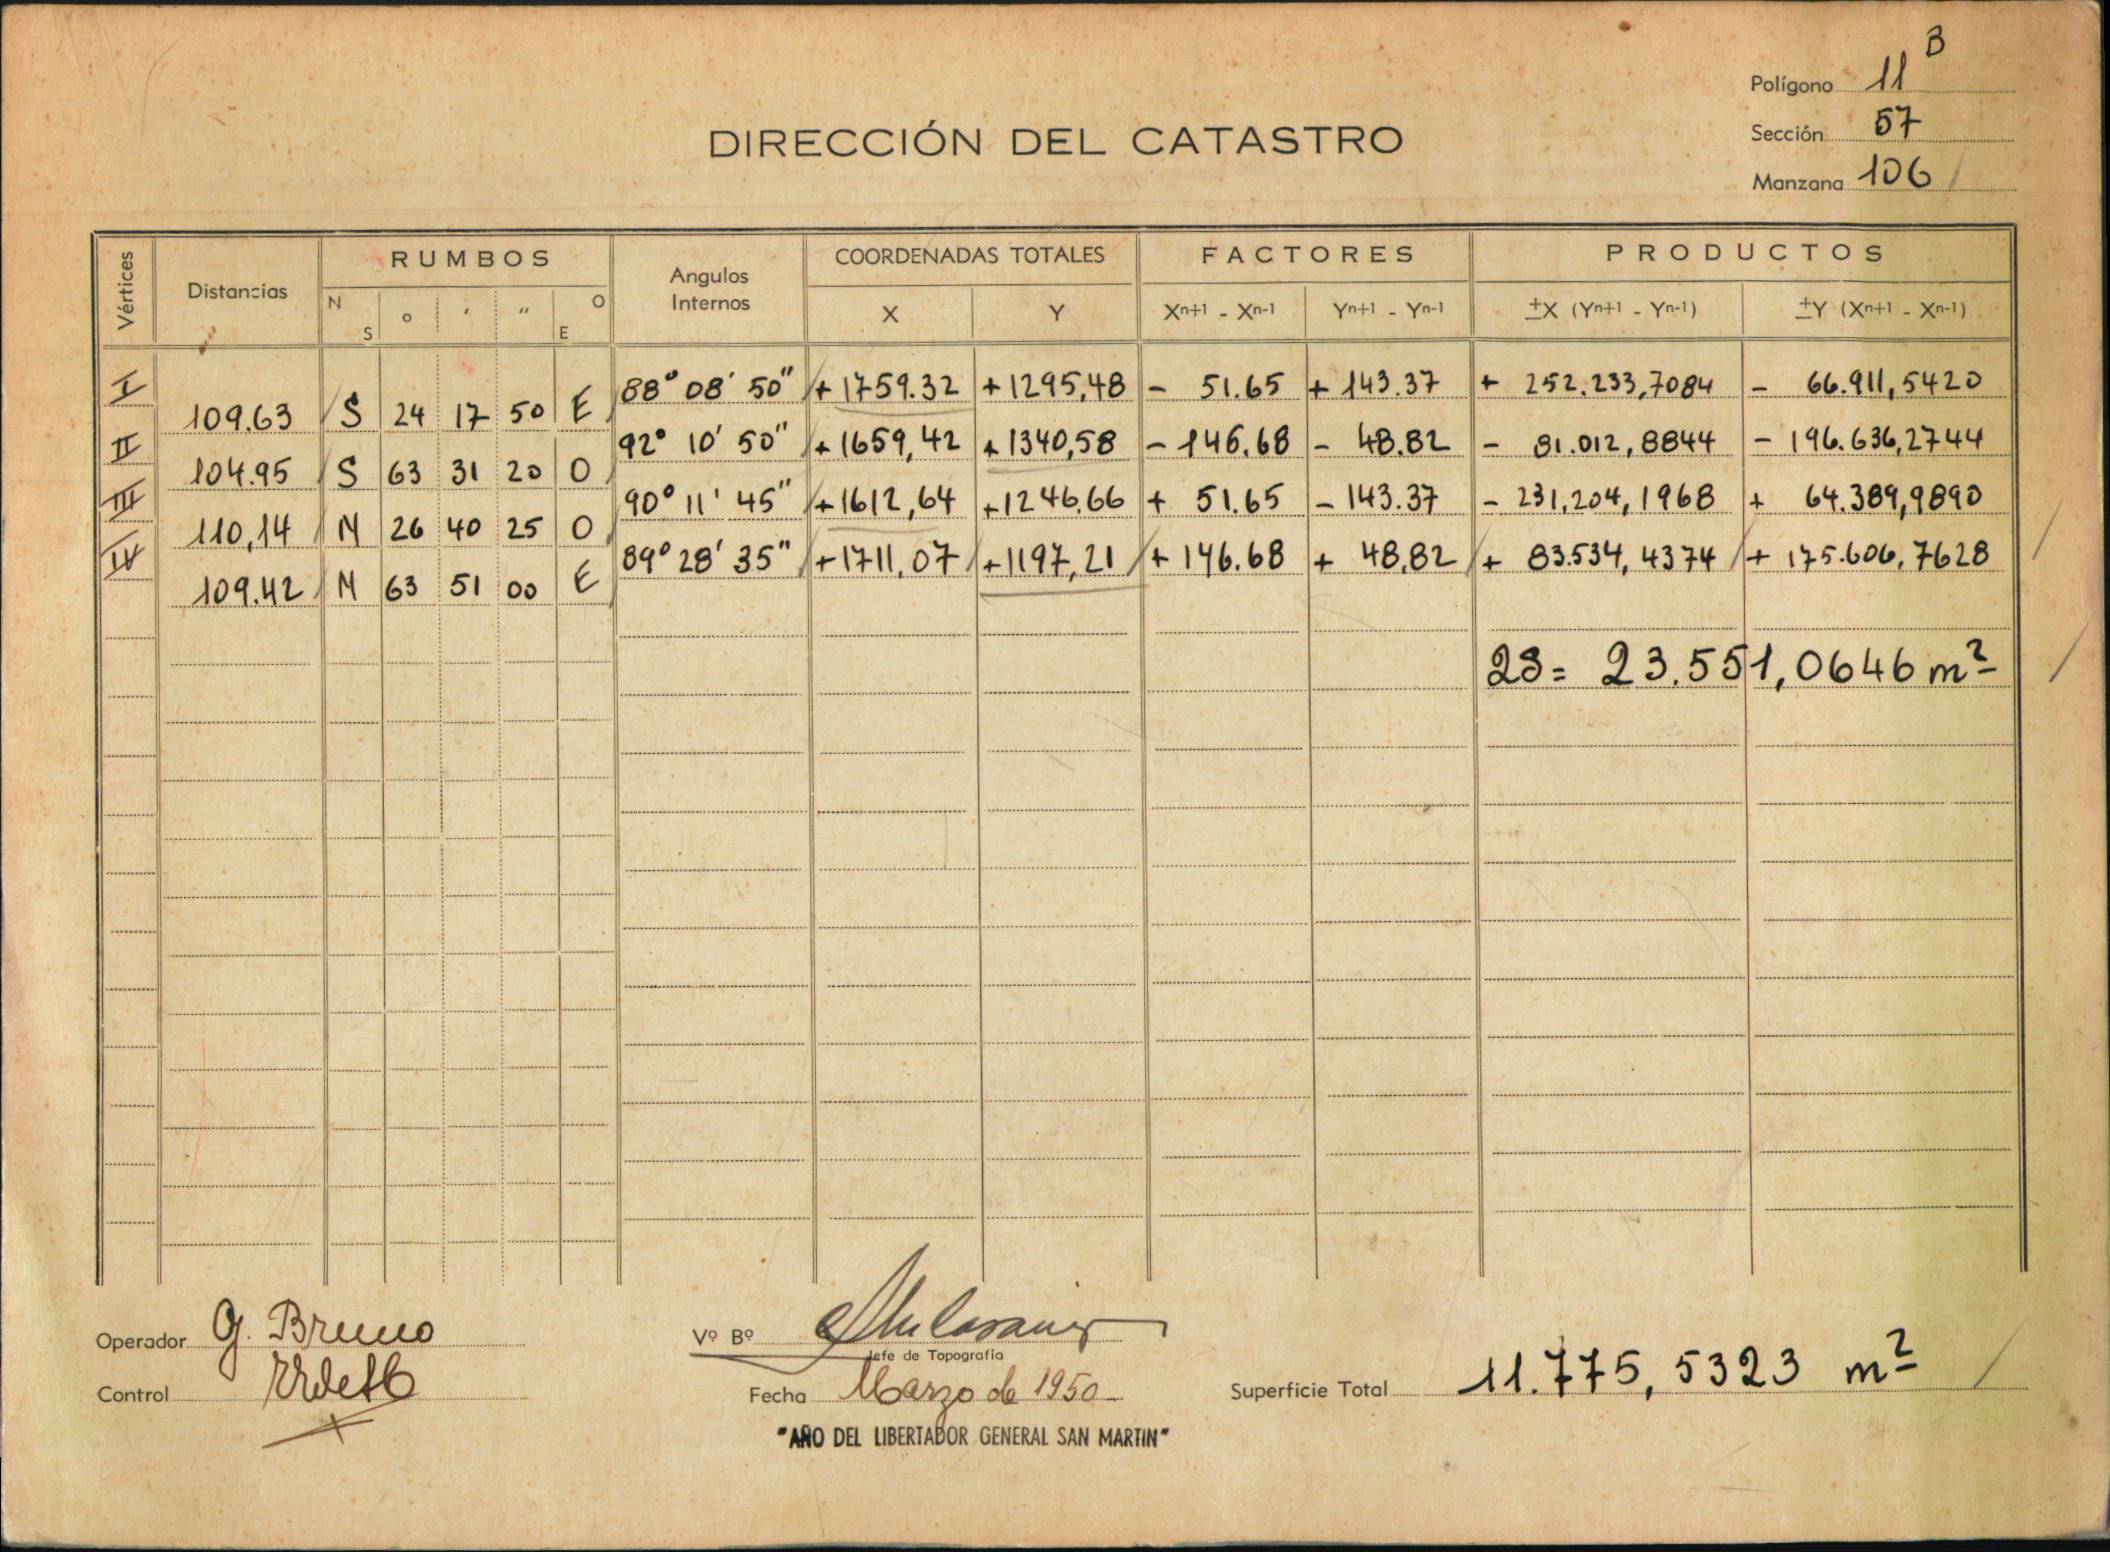 Polígono 11 B
Sección 57
Manzana 106
DIRECCIÓN DEL CATASTRO
Vértices Distancias RUMBOS Angulos Internos COORDENADAS TOTALES FACTORES PRODUCTOS
N S o ' " O E X Y Xn+1 - Xn-1 Yn+1 - Yn-1 ±X (Yn+1 - Yn-1) ±Y (Xn+1 - Xn-1)
I 88° 08' 50" +1759.32 +1295,48 - 51.65 + 143.37 + 252.233,7084 - 66.911,5420
109.63 S 24 17 50 E
II 92° 10' 50" +1659,42 +1340,58 - 146.68 - 48.82 - 81.012,8844 - 196.636,2744
104.95 S 63 31 20 O
III 90° 11' 45" +1612,64 +1246.66 + 51.65 - 143.37 - 231.204,1968 + 64.389,9890
110,14 N 26 40 25 O
IV 89° 28' 35" +1711,07 +1197,21 + 146.68 + 48,82 + 83.534,4374 + 175.606,7628
109.42 N 63 51 00 E
2S= 23.551,0646 m²
Operador G. Bruno
Control
Vº Bº
Jefe de Topografía
Fecha Marzo de 1950
Superficie Total 11.775,5323 m²
"AÑO DEL LIBERTADOR GENERAL SAN MARTIN"